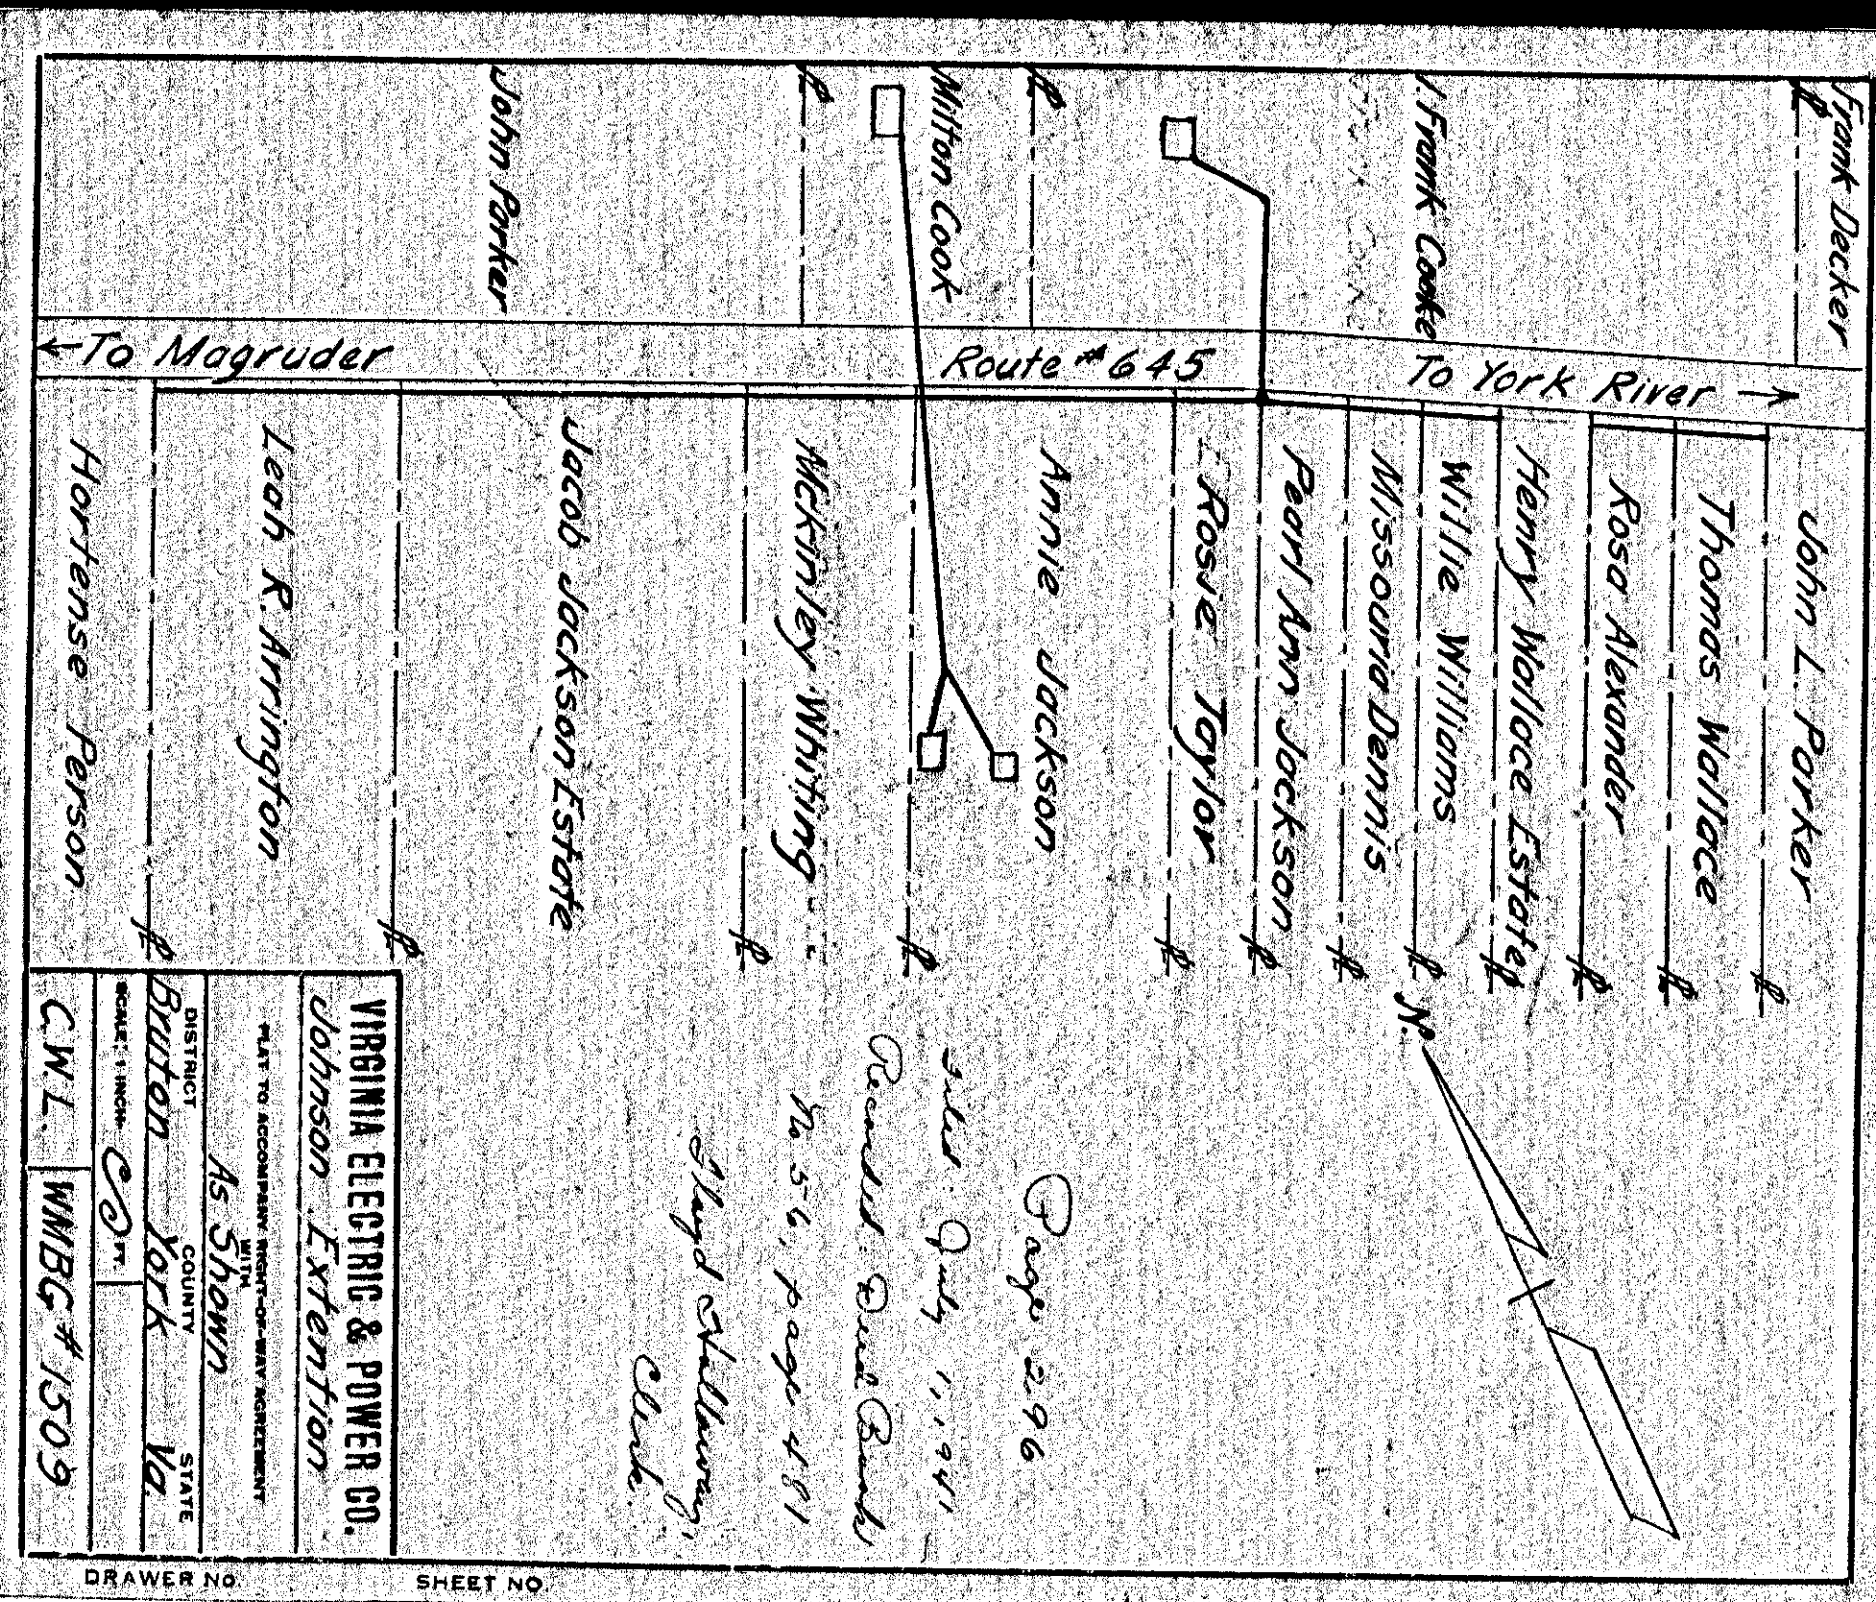 Frank Decker
J. Frank Cooke
Milton Cook
John Parker
← To Magruder
Route # 645
To York River →
John L. Parker
Thomas Wallace
Rosa Alexander
Henry Wallace Estate
Willie Williams
Missouria Dennis
Pearl Ann Jackson
Rosie Taylor
Annie Jackson
McKinley Whiting
Jacob Jackson Estate
Leah R. Arrington
Hortense Person
N.
Page 296
Filed: July 1, 1941
Recorded: Deed Book
No 56, page 481
Floyd Holloway,
Clerk.
VIRGINIA ELECTRIC & POWER CO.
Johnson Extention
PLAT TO ACCOMPANY RIGHT-OF-WAY AGREEMENT
WITH
As Shown
DISTRICT COUNTY STATE
Bruton York Va.
SCALE: 1 INCH= FT.
C.W.L. WMBG # 1509
DRAWER NO. SHEET NO.